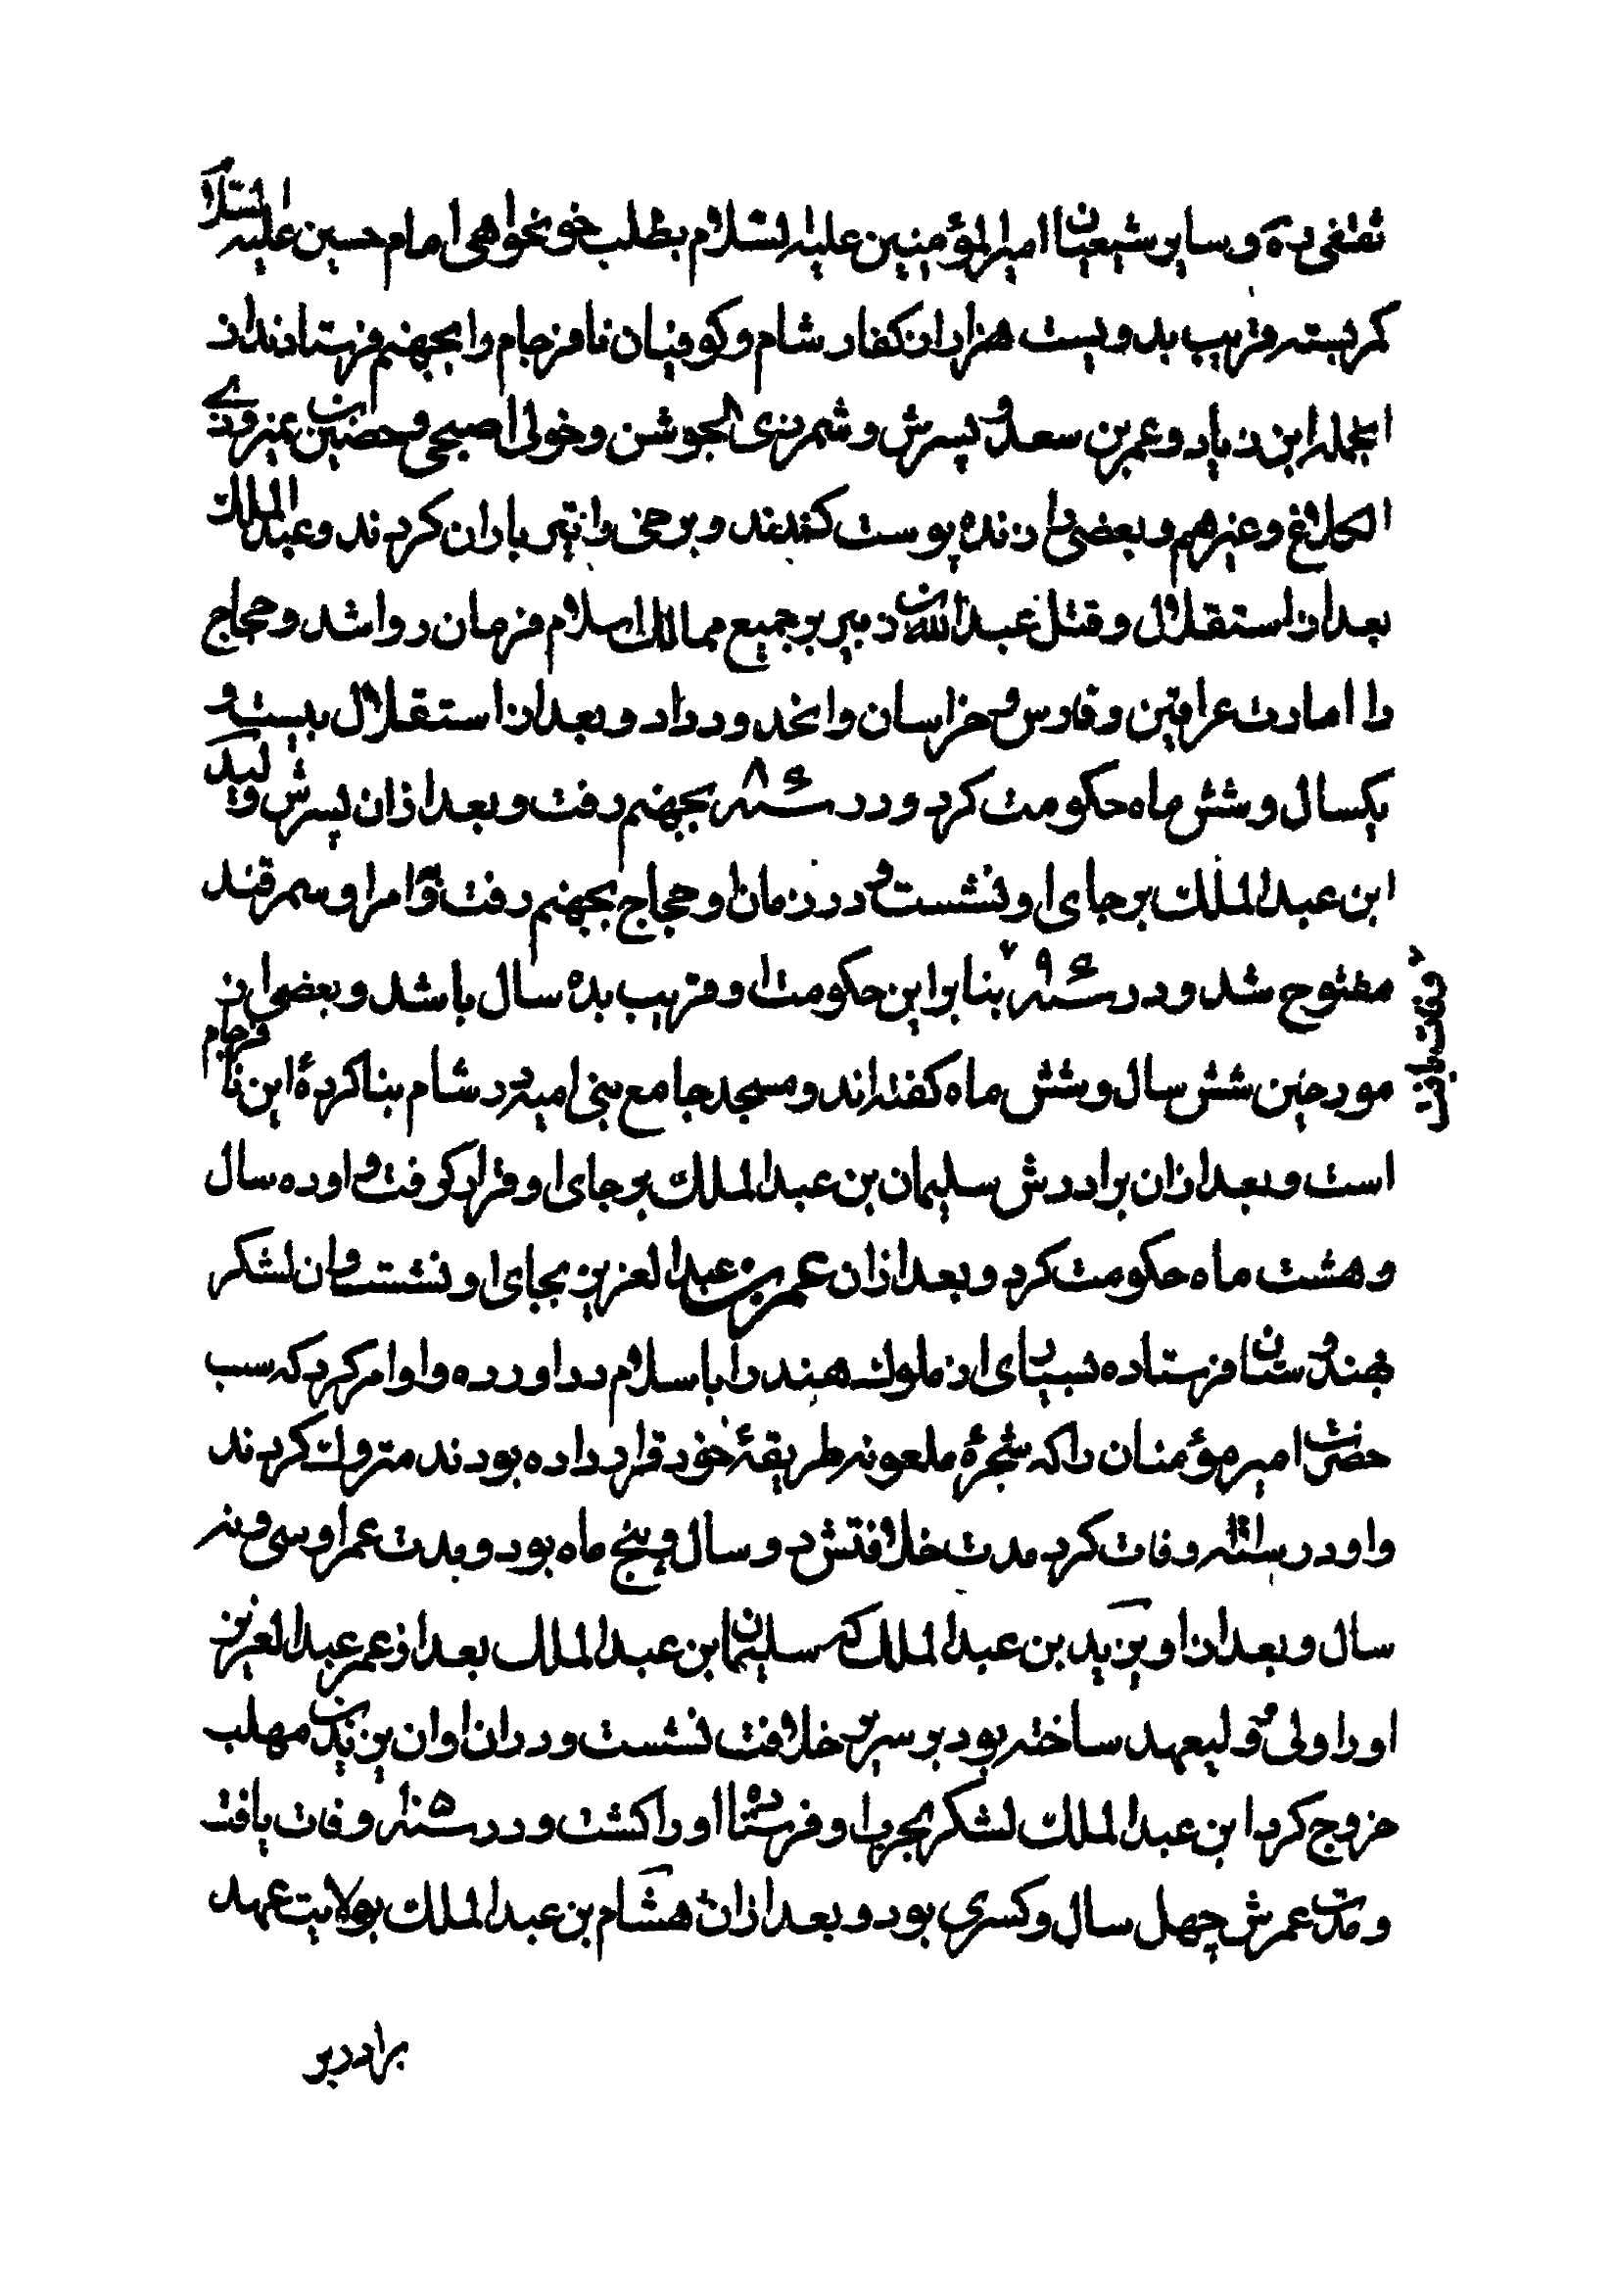 ثقفی ره و سایر شیعیان امیرالمؤمنین علیه السلام بطلب خونخواهی امام حسین علیه السلام
کمر بسته قریب بدویست هزار از کفار شام و کوفیان نافرجام را بجهنم فرستادند از
انجمله ابن زیاد و عمر بن سعد و پسرش و شمر ذی الجوشن و خولی اصبحی و حصین بن نمیر و ذی
الکلاع و غیرهم و بعضی را زنده پوست کندند و برخی را تیر باران کردند و عبدالملک
بعد از استقلال و قتل عبدالله بن زبیر بر جمیع ممالک اسلام فرمان روا شد و حجاج
را امارت عراقین و فارس و خراسان و انحدود داد و بعد از استقلال بیست و
یکسال و شش ماه حکومت کرد و در سنه ۸۶ بجهنم رفت و بعد از ان پسرش ولید
ابن عبدالملک بر جای او نشست و در زمان او حجاج بجهنم رفت و سمرقند
مفتوح شد و در سنه ۹۶ وفات یافت بنابراین حکومت او قریب بده سال باشد و بعضی از
مورخین شش سال و شش ماه گفته اند و مسجد جامع بنی امیه در شام بنا کردۀ این نافرجام
است و بعد از ان برادرش سلیمان بن عبدالملک بر جای او قرار گرفت و او ده سال
و هشت ماه حکومت کرد و بعد از ان عمر بن عبدالعزیز بجای او نشست و ان لشکر
بهندوستان فرستاده بسیاری از ملوک هند را باسلام در اورده و او امر کرد که سب
حضرت امیر مؤمنان را که شجرۀ ملعونه طریقۀ خود قرار داده بودند متروک کردند
و او در سنه ۱۰۱ وفات کرد مدت خلافتش دو سال و پنج ماه بود و مدت عمر او سی و نه
سال و بعد از او یزید بن عبدالملک که سلیمان بن عبدالملک بعد از عمر عبدالعزیز
او را ولی ولیعهد ساخته بود بر سریر خلافت نشست و در ان اوان یزید بن مهلب
خروج کرد ابن عبدالملک لشکر بحرب او فرستاده او را کشت و در سنه ۱۰۵ وفات یافت
و مدت عمرش چهل سال و کسری بود و بعد از ان هشام بن عبدالملک بولایت عهد
برادر بر